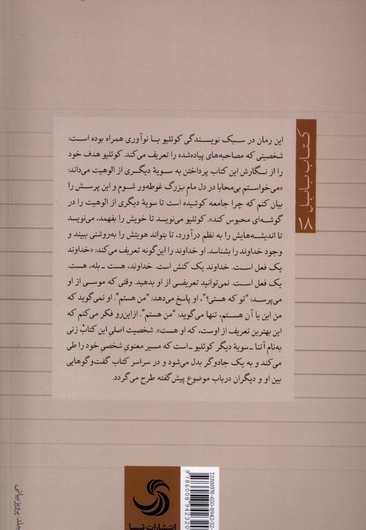 کتاب بابل
۸
این رمان در سبک نویسندگی کوئلیو با نوآوری همراه بوده است؛
شخصیتی که مصاحبه‌های پیاده‌شده را تعریف می‌کند. کوئلیو هدف خود
را از نگارش این کتاب پرداختن به سویهٔ دیگری از الوهیت می‌داند:
«می‌خواستم بی‌محابا در دل مام بزرگ غوطه‌ور شوم و این پرسش را
بیان کنم که چرا جامعه کوشیده است تا سویهٔ دیگری از الوهیت را در
گوشه‌ای محبوس کند». کوئلیو می‌نویسد تا خویش را بفهمد، می‌نویسد
تا اندیشه‌هایش را به نظم درآورد، تا بتواند هویتش را به‌روشنی ببیند و
وجود خداوند را بشناسد. او خداوند را این‌گونه تعریف می‌کند: «خداوند
یک فعل است. خداوند یک کنش است. خداوند، هست ـ بله، هست.
یک فعل است. نمی‌توانید تعریفی از او بدهید. وقتی که موسی از او
می‌پرسد: "تو که هستی؟"، او پاسخ می‌دهد: "من هستم". او نمی‌گوید که
من این یا آن هستم، تنها می‌گوید: "من هستم". ازاین‌رو فکر می‌کنم که
این بهترین تعریف از اوست، که او هست». شخصیت اصلی این کتاب زنی
به‌نام آتنا ـ سویهٔ دیگر کوئلیو ـ است که مسیر معنوی شخصی خود را طی
می‌کند و به یک جادوگر بدل می‌شود و در سراسر کتاب گفت‌وگوهایی
بین او و دیگران درباب موضوع پیش‌گفته طرح می‌گردد.
انتشارات تیسا
9786008942320